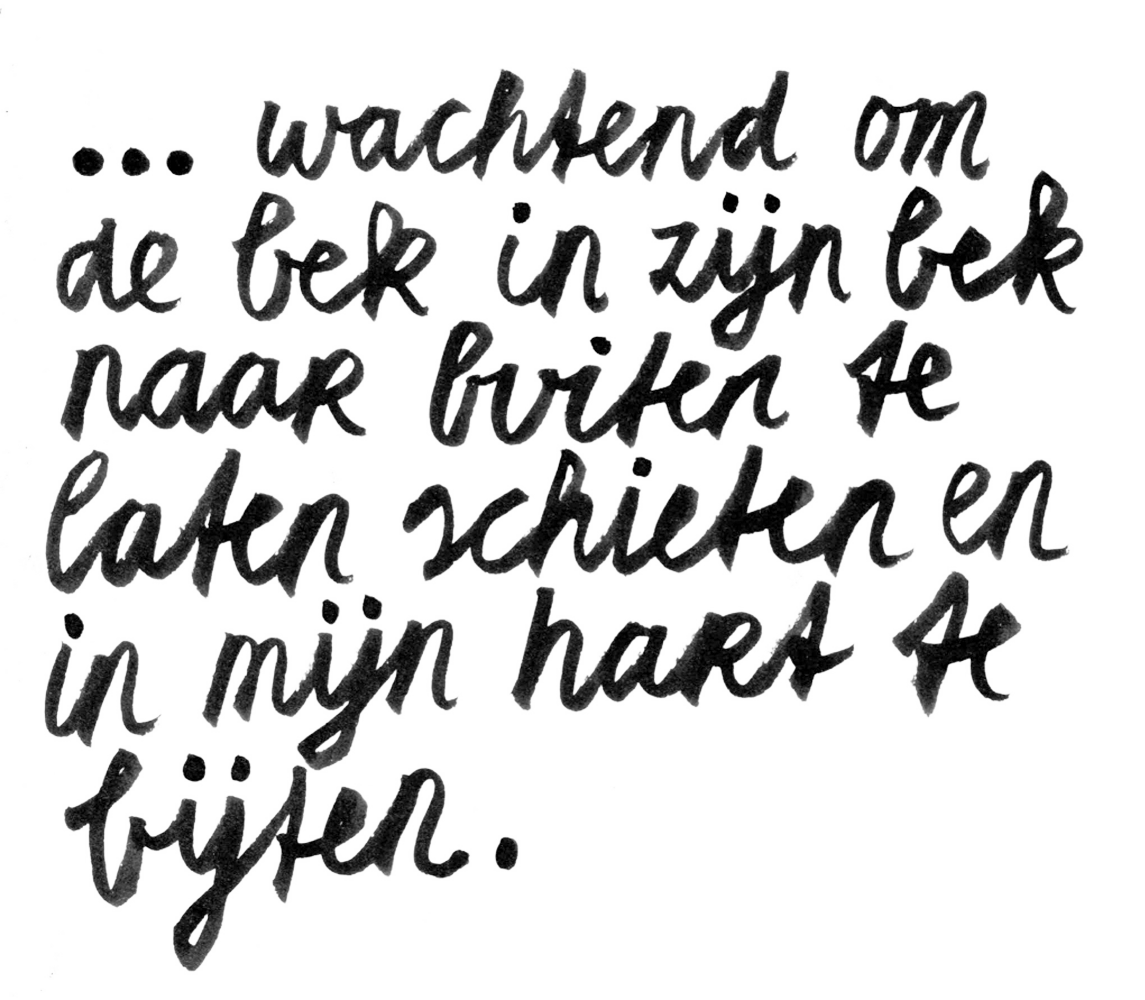 ... wachtend om
de bek in zijn bek
naar buiten te
laten schieten en
in mijn hart te
bijten.